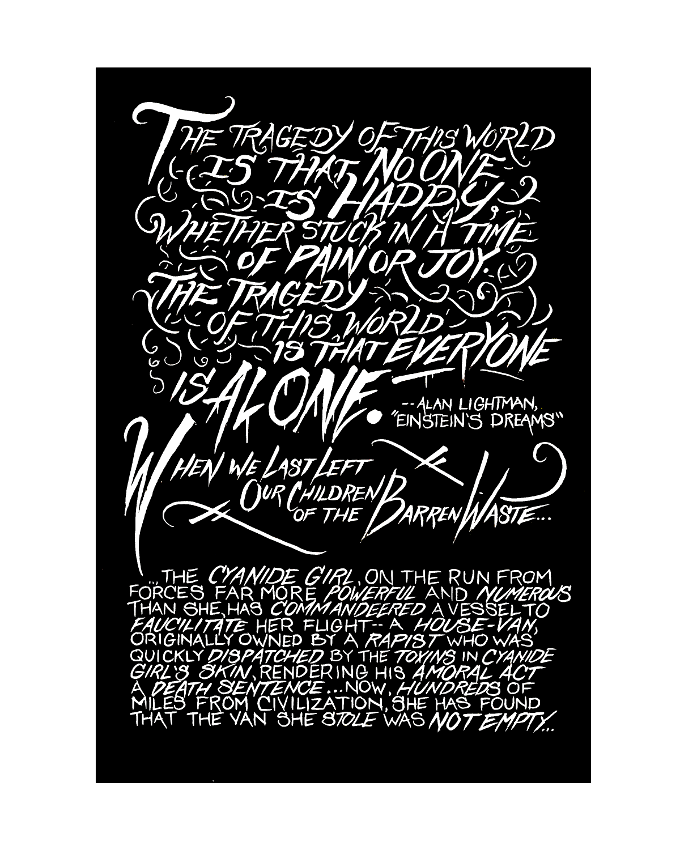 THE TRAGEDY OF THIS WORLD
IS THAT NO ONE
IS HAPPY,
WHETHER STUCK IN A TIME
OF PAIN OR JOY.
THE TRAGEDY
OF THIS WORLD
IS THAT EVERYONE
IS ALONE.
--ALAN LIGHTMAN,
"EINSTEIN'S DREAMS"
WHEN WE LAST LEFT
OUR CHILDREN
OF THE BARREN WASTE...
...THE CYANIDE GIRL, ON THE RUN FROM
FORCES FAR MORE POWERFUL AND NUMEROUS
THAN SHE, HAS COMMANDEERED A VESSEL TO
FAUCILITATE HER FLIGHT-- A HOUSE-VAN,
ORIGINALLY OWNED BY A RAPIST WHO WAS
QUICKLY DISPATCHED BY THE TOXINS IN CYANIDE
GIRL'S SKIN, RENDERING HIS AMORAL ACT
A DEATH SENTENCE...NOW, HUNDREDS OF
MILES FROM CIVILIZATION, SHE HAS FOUND
THAT THE VAN SHE STOLE WAS NOT EMPTY...